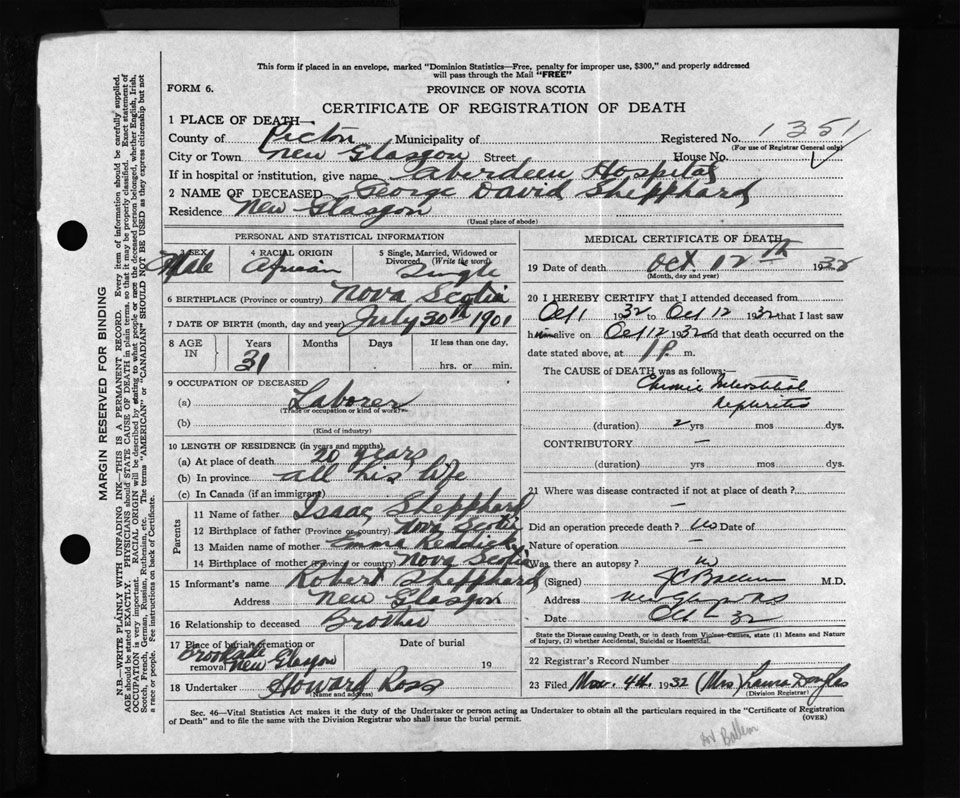 This form if placed in an envelope, marked "Dominion Statistics—Free, penalty for improper use, $300," and properly addressed
will pass through the Mail "FREE"
FORM 6.
PROVINCE OF NOVA SCOTIA
CERTIFICATE OF REGISTRATION OF DEATH
1 PLACE OF DEATH—
County of Pictou Municipality of Registered No. 1351
(For use of Registrar General only)
City or Town New Glasgow Street House No.
If in hospital or institution, give name Aberdeen Hospital
2 NAME OF DECEASED George David Sheppard
Residence New Glasgow
(Usual place of abode)
PERSONAL AND STATISTICAL INFORMATION
3 SEX Male
4 RACIAL ORIGIN African
5 Single, Married, Widowed or Divorced. (Write the word) Single
6 BIRTHPLACE (Province or country) Nova Scotia
7 DATE OF BIRTH (month, day and year) July 30th 1901
8 AGE IN Years Months Days If less than one day,
31 hrs. or min.
9 OCCUPATION OF DECEASED
(a) Laborer
(Trade or occupation or kind of work)
(b)
(Kind of industry)
10 LENGTH OF RESIDENCE (in years and months)
(a) At place of death 20 years
(b) In province all his life
(c) In Canada (if an immigrant)
Parents
11 Name of father Isaac Shepphard
12 Birthplace of father (Province or country) Nova Scotia
13 Maiden name of mother Emma Reddick
14 Birthplace of mother (Province or country) Nova Scotia
15 Informant's name Robert Shepphard
Address New Glasgow
16 Relationship to deceased Brother
17 Place of burial, cremation or removal New Glasgow Date of burial 19
18 Undertaker Howard Ross
(Name and address)
MEDICAL CERTIFICATE OF DEATH
19 Date of death Oct. 12th 1932
(Month, day and year)
20 I HEREBY CERTIFY that I attended deceased from
Oct 1 1932 to Oct 12 1932 that I last saw
him alive on Oct 12 1932 and that death occurred on
date stated above, at 1 P. m.
The CAUSE of DEATH was as follows:—
Chronic Interstitial
Nephritis
(duration) 2 yrs mos dys.
CONTRIBUTORY —
(duration) yrs mos dys.
21 Where was disease contracted if not at place of death?
—
Did an operation precede death? No Date of
Nature of operation —
Was there an autopsy? no
(Signed) M.D.
Address New Glasgow NS
Date Oct 32
State the Disease causing Death, or in death from Violent Causes, state (1) Means and Nature
of Injury, (2) whether Accidental, Suicidal or Homicidal.
22 Registrar's Record Number
23 Filed Nov. 4th 1932 (Mrs) Laura Douglas
(Division Registrar)
Sec. 46—Vital Statistics Act makes it the duty of the Undertaker or person acting as Undertaker to obtain all the particulars required in the "Certificate of Registration
of Death" and to file the same with the Division Registrar who shall issue the burial permit.
(OVER)
MARGIN RESERVED FOR BINDING
N.B.—WRITE PLAINLY WITH UNFADING INK—THIS IS A PERMANENT RECORD. Every item of information should be carefully supplied.
AGE should be stated EXACTLY. PHYSICIANS should STATE CAUSE OF DEATH in plain terms, so that it may be properly classified. Exact statement of
OCCUPATION is very important. RACIAL ORIGIN will be described by stating to what people or race the deceased person belonged, whether English, Irish,
Scotch, French, German, Russian, Ruthenian, etc. The terms "AMERICAN" or "CANADIAN" SHOULD NOT BE USED as they express citizenship but not
a race or people. See instructions on back of Certificate.